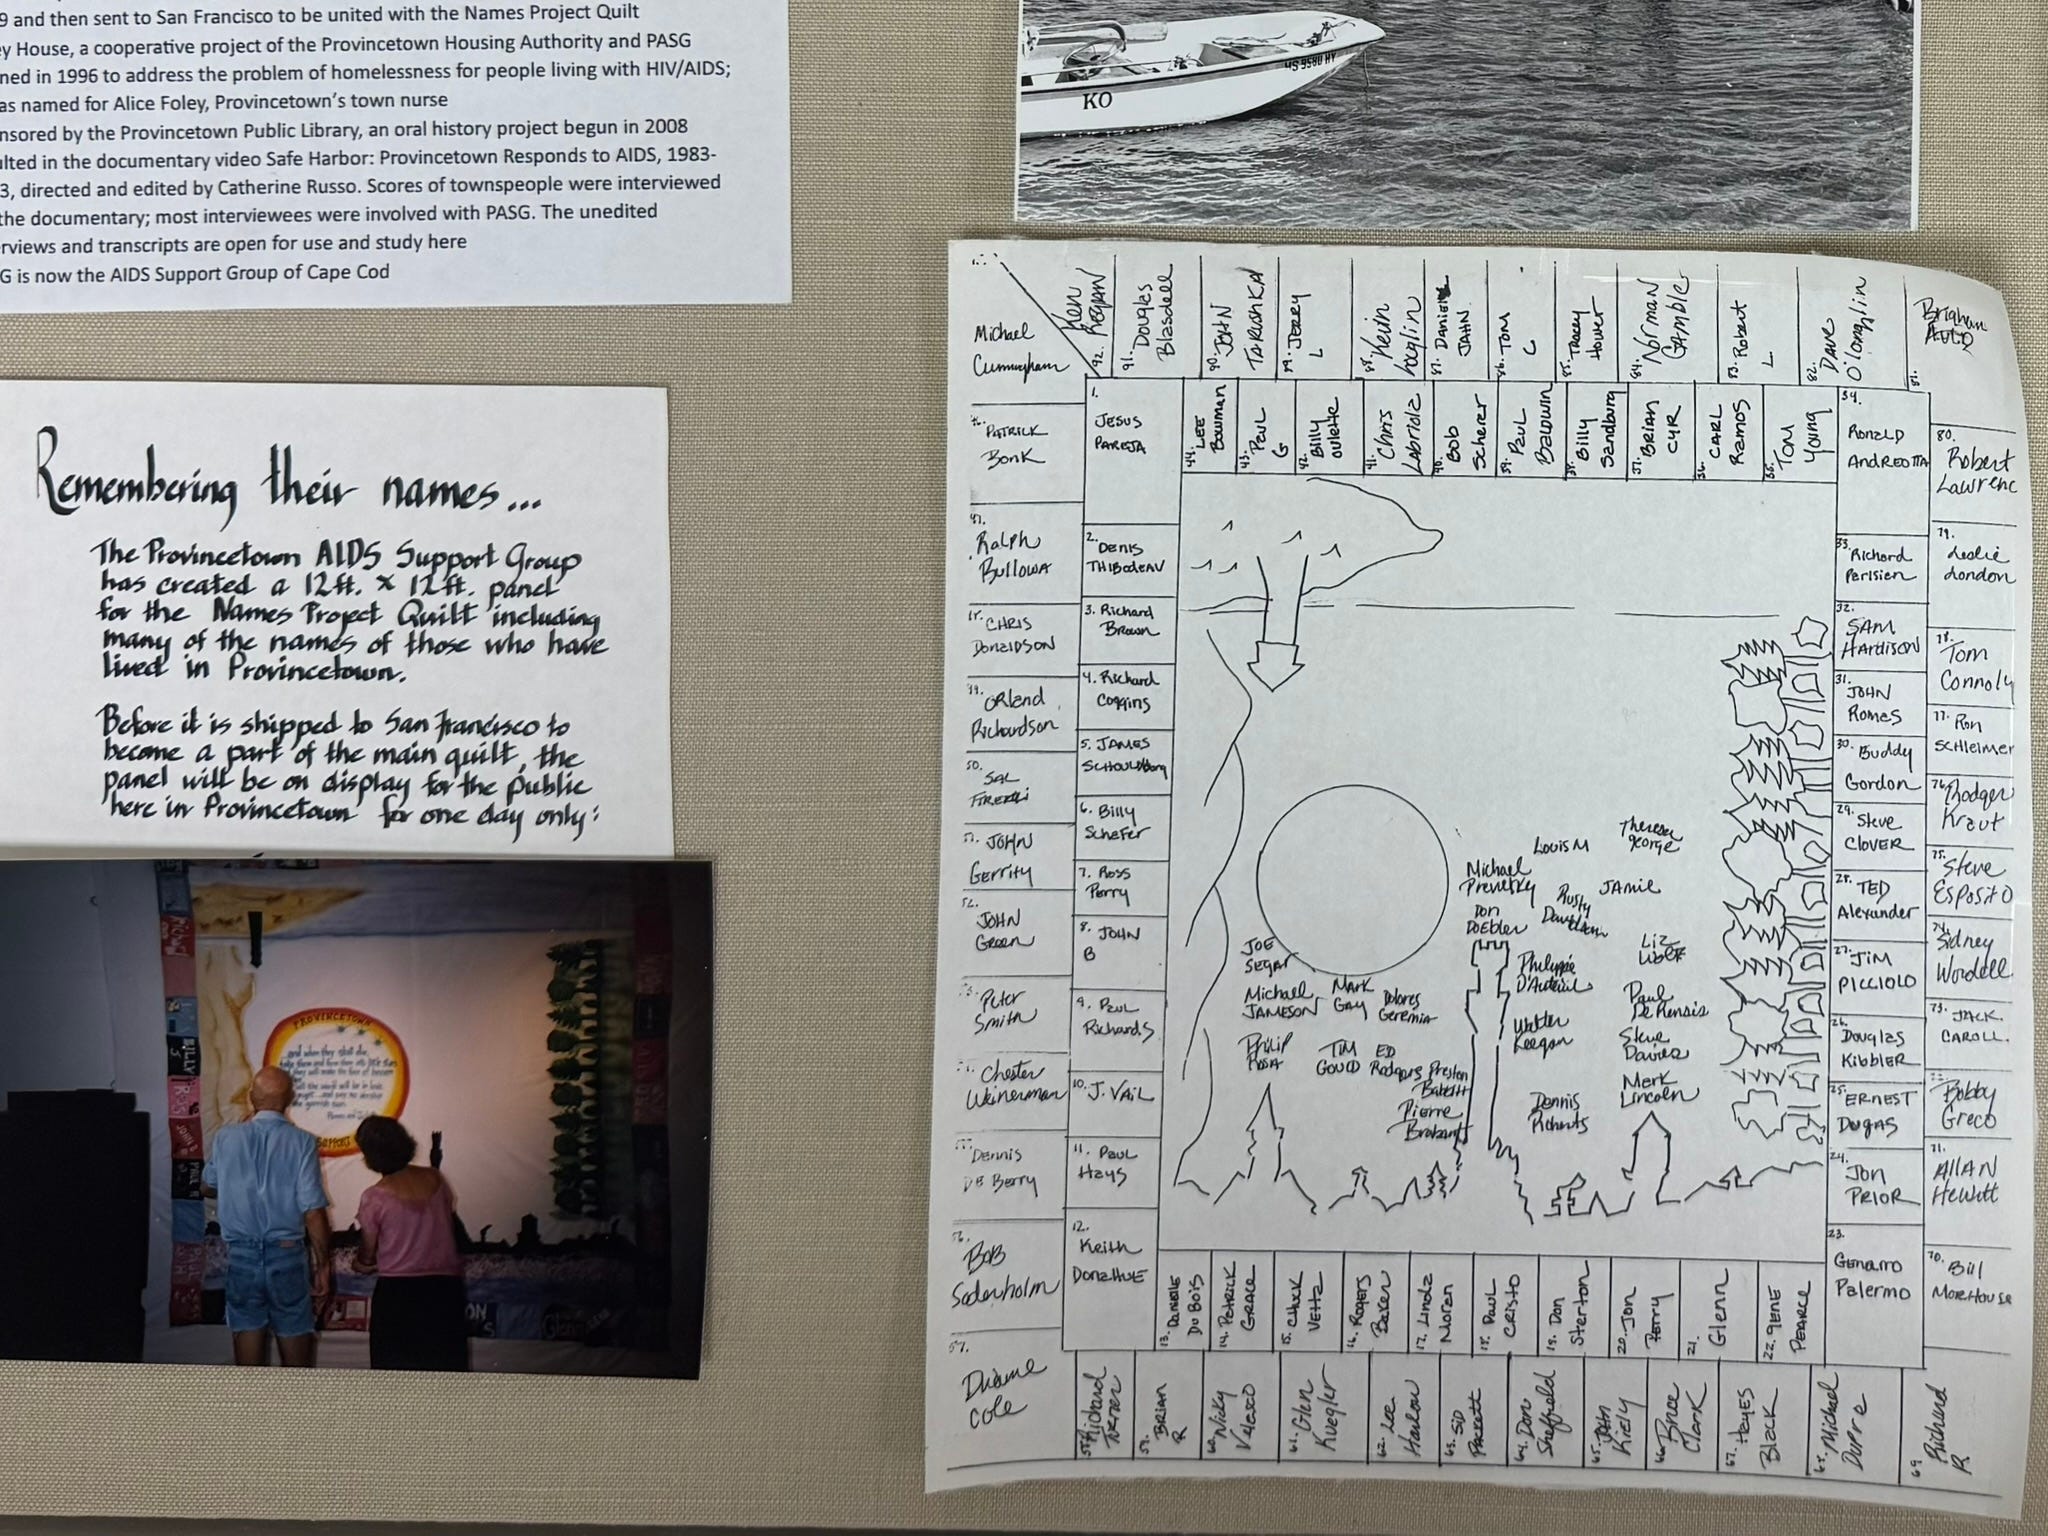 9 and then sent to San Francisco to be united with the Names Project Quilt
ey House, a cooperative project of the Provincetown Housing Authority and PASG
ned in 1996 to address the problem of homelessness for people living with HIV/AIDS;
as named for Alice Foley, Provincetown's town nurse
nsored by the Provincetown Public Library, an oral history project begun in 2008
ulted in the documentary video Safe Harbor: Provincetown Responds to AIDS, 1983-
3, directed and edited by Catherine Russo. Scores of townspeople were interviewed
the documentary; most interviewees were involved with PASG. The unedited
rviews and transcripts are open for use and study here
G is now the AIDS Support Group of Cape Cod
KO
Remembering their names...
The Provincetown AIDS Support Group
has created a 12ft. x 12ft. panel
for the Names Project Quilt including
many of the names of those who have
lived in Provincetown.
Before it is shipped to San Francisco to
become a part of the main quilt, the
panel will be on display for the public
here in Provincetown for one day only:
PROVINCETOWN
SUPPORT
Michael
Cunningham
92. Ken
Regan
91. Douglas
Blasdell
90. JOHN
TARUSHKA
89. JERRY
L
88. Kevin
87. Danielle
JAHN
86. TOM
C
85. Tracey
Hower
84. Norman
Gamble
83. Robert
L
82. Dave
O'Loughlin
81.
Brigham
PATRICK
BONK
Ralph
Bullowa
CHRIS
Donaldson
Orland
Richardson
50.
SAL
JOHN
Gerrity
52.
JOHN
Green
Peter
Smith
Chester
Weinerman
Dennis
DE Berry
56.
BOB
Soderholm
57.
Duane
Cole
1.
JESUS
PAREJA
2. DENIS
THIBODEAU
3. Richard
Brown
4. Richard
Coggins
5. JAMES
6. Billy
Schafer
7. Ross
Perry
8. JOHN
B
9. Paul
Richards
10. J. VAIL
11. Paul
Hays
12.
Keith
DONAHUE
44. LEE
Bowman
43. Paul
G
42. Billy
Oulette
41. Chris
Labriola
40. Bob
Scherer
39. Paul
Baldwin
38. Billy
Sandburg
37. BRIAN
CYR
36. CARL
RAMOS
35. Tom
Young
34.
Ronald
ANDREOTTA
33. Richard
Parisien
32.
SAM
Hardison
31.
JOHN
Romes
30. Buddy
Gordon
29. Steve
CLOVER
28. TED
Alexander
27. JiM
PICCIOLO
26.
Douglas
Kibbler
25. ERNEST
Dugas
24. JON
PRIOR
23.
Genarro
Palermo
80.
Robert
Lawrenc
79.
Leslie
London
78.
Tom
Connoly
77. Ron
Schleimer
76. Rodger
Kraut
75.
Steve
Esposito
74.
Sidney
Wordell
73. JACK
CAROLL.
Bobby
Greco
71.
AllAN
Hewitt
70. Bill
MOREHOUSE
Theresa
George
Louis M
Michael
Jamie
Rusty
Don
Doebler
Liz
JOE
SEGAL
Philippe
D'Auteuil
Michael
JAMESON
Mark
GAY
Dolores
Geremia
Paul
Walter
Keegan
Steve
Davies
Philip
Rosa
TiM
GOULD
ED
Rodgers
Preston
Babbitt
Mark
Lincoln
Pierre
Dennis
13. Danielle
Du Bois
14. PATRICK
GRACE
15. CHUCK
16. ROGERS
Baker
17. Linda
Moran
18. Paul
CRISTO
19. Don
Sterton
20. Jon
Perry
21.
Glenn
22. gENE
PEARCE
58. Richard
Turner
59. BRIAN
R
60. Nicky
61. Glen
Kuegler
62. Lee
Harlow
63. SiD
Packett
64. Don
Sheffield
65. JOHN
Kiely
66. Bruce
Clark
67. Hayes
Black
68. Michael
Dupre
69
Richard
R